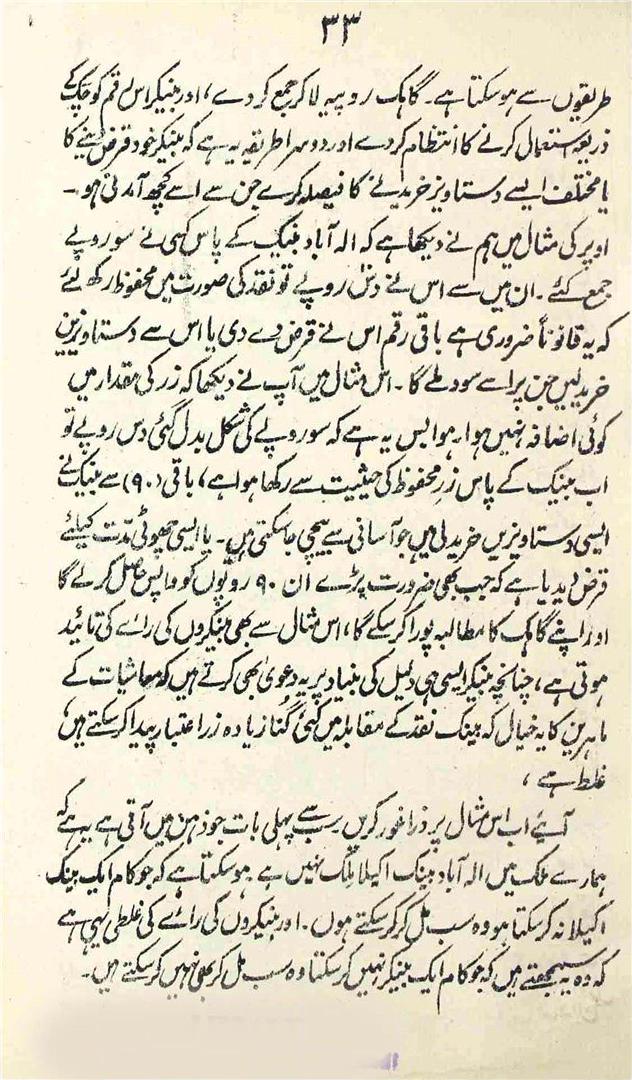 ۳۳
طریقوں سے ہو سکتا ہے۔ گاہک روپیہ لاکر جمع کر دے، اور بینکر اس رقم کو چک کے
ذریعہ استعمال کرنے کا انتظام کردے اور دوسرا طریقہ یہ ہے کہ بینکر خود قرض دینے کا
یا مختلف ایسے دستاویز خریدنے کا فیصلہ کرے جن سے اسے کچھ آمدنی ہو۔
اوپر کی مثال میں ہم نے دیکھا ہے کہ الہ آباد بینک کے پاس کسی نے سو روپے
جمع کئے۔ ان میں سے اس نے دس روپے تو نقد کی صورت میں محفوظ رکھ لئے
کہ یہ قانوناً ضروری ہے باقی رقم اس نے قرض دے دی یا اس سے دستاویزیں
خرید لیں جن پر اسے سود ملے گا۔ اس مثال میں آپ نے دیکھا کہ زر کی مقدار میں
کوئی اضافہ نہیں ہوا۔ ہوا بس یہ ہے کہ سو روپے کی شکل بدل گئی دس روپے تو
اب بینک کے پاس زرِ محفوظ کی حیثیت سے رکھا ہوا ہے، باقی (۹۰) سے بینک نے
ایسی دستاویزیں خرید لی ہیں جو آسانی سے بیچی جا سکتی ہیں۔ یا ایسی چھوٹی مدّت کیلئے
قرض دیدیا ہے کہ جب بھی ضرورت پڑے ان ۹۰ روپوں کو واپس حاصل کر لے گا
اور اپنے گاہک کا مطالبہ پورا کر سکے گا، اس مثال سے بھی بینکروں کی رائے کی تائید
ہوتی ہے، چنانچہ بینکر ایسی ہی دلیل کی بنیاد پر یہ دعویٰ بھی کرتے ہیں کہ معاشیات کے
ماہرین کا یہ خیال کہ بینک نقد کے مقابلہ میں کئی گُنا زیادہ زر اعتبار پیدا کر سکتے ہیں
غلط ہے،
آئیے اب اس مثال پر ذرا غور کریں سب سے پہلی بات جو ذہن میں آتی ہے یہ ہے کہ
ہمارے ملک میں الہ آباد بینک اکیلا بینک نہیں ہے ہو سکتا ہے کہ جو کام ایک بینک
اکیلا نہ کر سکتا ہو وہ سب مل کر کر سکتے ہوں۔ اور بینکروں کی رائے کی غلطی یہی ہے
کہ وہ یہ سمجھتے ہیں کہ جو کام ایک بینکر نہیں کر سکتا وہ سب مل کر بھی نہیں کر سکتے ہیں۔